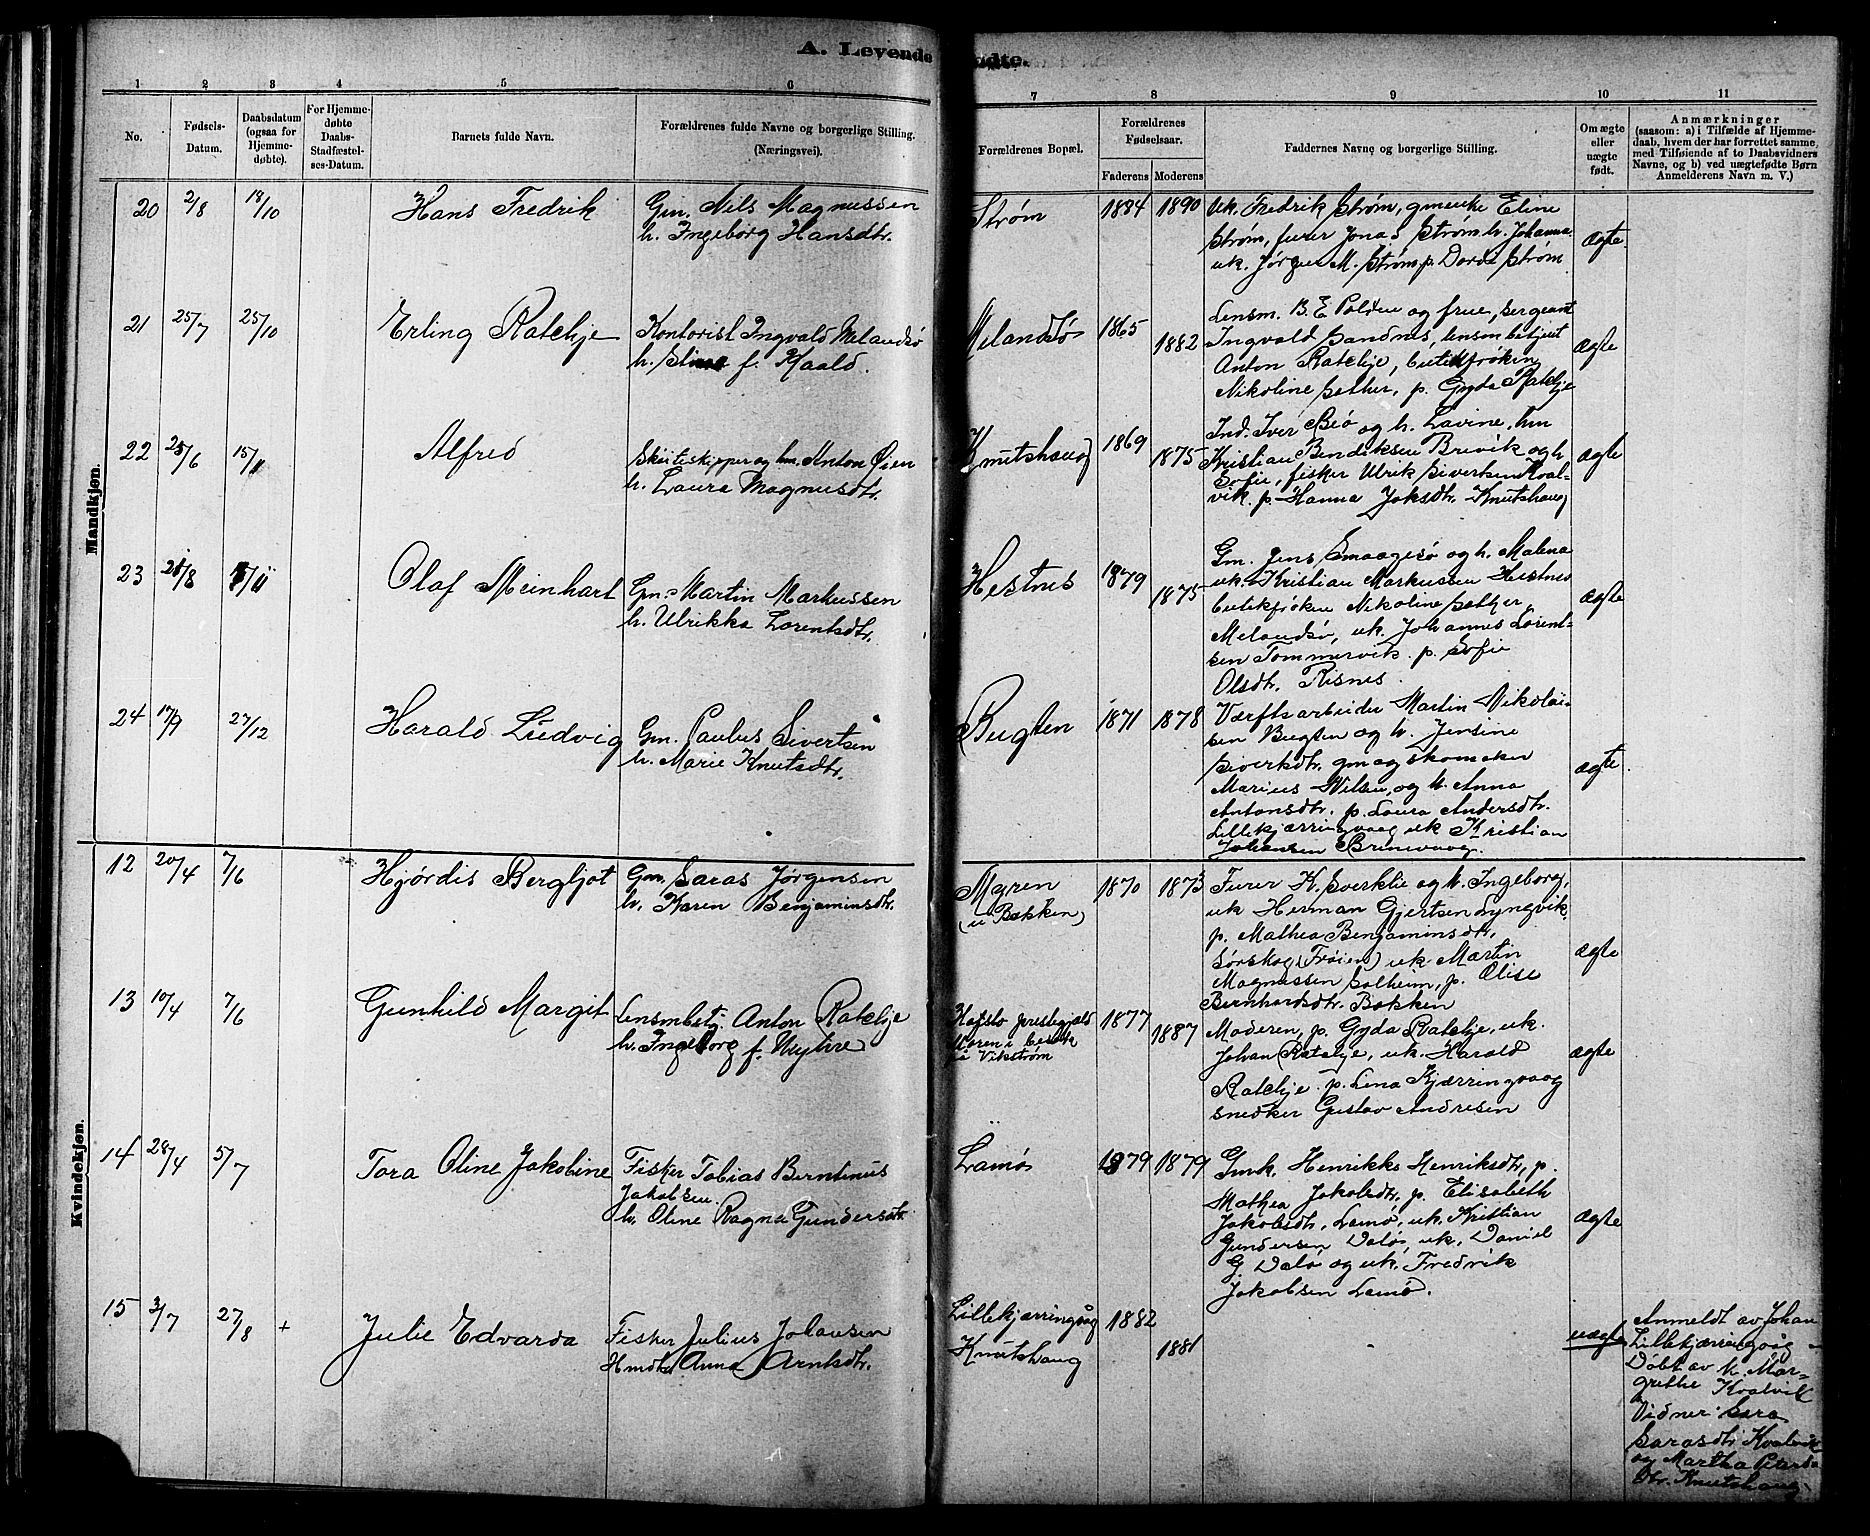 A. Levendefødte.
1 2 3 4 5 6 7 8 9 10 11
No.
Fødsels-
Datum.
Daabsdatum
(ogsaa for
Hjemme-
døbte).
For Hjemme-
døbte
Daabs-
Stadfæstel-
ses-Datum.
Barnets fulde Navn.
Forældrenes fulde Navne og borgerlige Stilling.
(Næringsvei).
Forældrenes Bopæl.
Forældrenes
Fødselsaar.
Faderens Moderens
Faddernes Navne og borgerlige Stilling.
Om ægte
eller
uægte
født.
Anmærkninger
(saasom: a) i Tilfælde af Hjemme-
daab, hvem der har forrettet samme,
med Tilføiende af to Daabsvidners
Navne, og b) ved uægtefødte Børn
Anmelderens Navn m. V.)
Mandkjøn.
20 2/8 18/10 Hans Fredrik
Gm. Nils Magnussen
h. Ingeborg Hansdtr.
Strøm 1884 1890
uk. Fredrik Strøm, gmenke Eline
Strøm, furer Jonas Strøm h. Johanna
uk. Jørgen M. Strøm p. Dorde Strøm
ægte
21 25/7 25/10 Erling Ratchje
Kontorist Ingvald Melandsø
h. Stina f. Kaald.
Melandsø 1865 1882
Lensm. B. E. Polden og frue, sergeant
Ingvald Sandnes, lensm.betjent
Anton Ratchje, butikfrøken
Nikoline Sæther, p. Gyda Ratchje
ægte
22 25/6 15/11 Alfred
Skøiteskipper og hm. Anton Øien
h. Laura Magnusdtr.
Knutshaug 1869 1875
Ind. Iver Bø og h. Lavine, hm
Kristian Bendiksen Brevik og h.
Sofie, fisker Ulrik Sivertsen Kval-
vik p. Hanna Jaksdtr. Knutshaug
ægte
23 21/8 15/11 Olaf Meinhart
Gm. Martin Markussen
h. Ulrikka Lorentsdtr.
Hestnes 1879 1875
Gm. Jens Smaagesø og h. Malena
uk. Kristian Markussen Hestnes
butikfrøken Nikoline Sæther,
Melandsø, uk. Johannes Lorent-
sen Tommervik. p. Sofie
Olsdtr. Risnes.
ægte
24 17/9 27/12 Harald Ludvig
Gm. Paulus Sivertsen
h. Marie Knutsdtr.
Bugten 1871 1878
Værftsarbeider Martin Nikolai-
sen Bugten og h. Jensine
Sivertsdtr. gm og skomaker
Marius Nilsen, og h. Anna
Antonsdtr. p. Laura Andersdtr.
Lillekjærringvaag uk Kristian
Johansen
ægte
Kvindekjøn.
12 20/4 7/6 Hjørdis Bergljot
Gm. Saras Jørgensen
h. Karen Benjaminsdtr.
Myren
(u Bakken)
1870 1873
Furer K. Sverklie og h. Ingeborg,
uk Herman Gjertsen Lyngvik
p. Mathea Benjaminsdtr.
Sørskog (Frøien) uk Martin
Magnussen Solheim, p. Olise
Bernhardsdtr. Bakken
ægte
13 10/4 7/6 Gunhild Margit
Lensmbetj. Anton Ratchje
h. Ingeborg f. Myhre
Hafslo prestegjæld
Moren i besøk
i Vikstrøm
1877 1887
Moderen, p. Gyda Ratchje, uk.
Johan Ratchje, uk. Harald
Ratchje p. Lena Kjærringvaag
snedker Gustav Andresen
ægte
14 28/4 5/7 Tora Oline Jakobine
Fisker Tobias Berntinus
Jakobsen
h. Oline Ragna Gundersdtr.
Lamø 1879 1879
Gmk. Henrikke Henriksdtr, p.
Mathea Jakobsdtr, p. Elisabeth
Jakobsdtr, Lamø, uk. Kristian
Gundersen Dalø, uk. Daniel
G. Dalø og uk. Fredrik
Jakobsen Lamø.
ægte
15 3/7 27/8 + Julie Edvarda
Fisker Julius Johansen
Anna Arntsdtr.
Lillekjærringvåg 1882
Knutshaug 1881
uægte
Anmeldt av Johan
Lillekjærringvåg
Døbt av k. Mar-
grethe Kvalvik
Vidner: Sara
Sarasdtr Kvalvik
og Martha Peters-
dtr. Knutshaug.